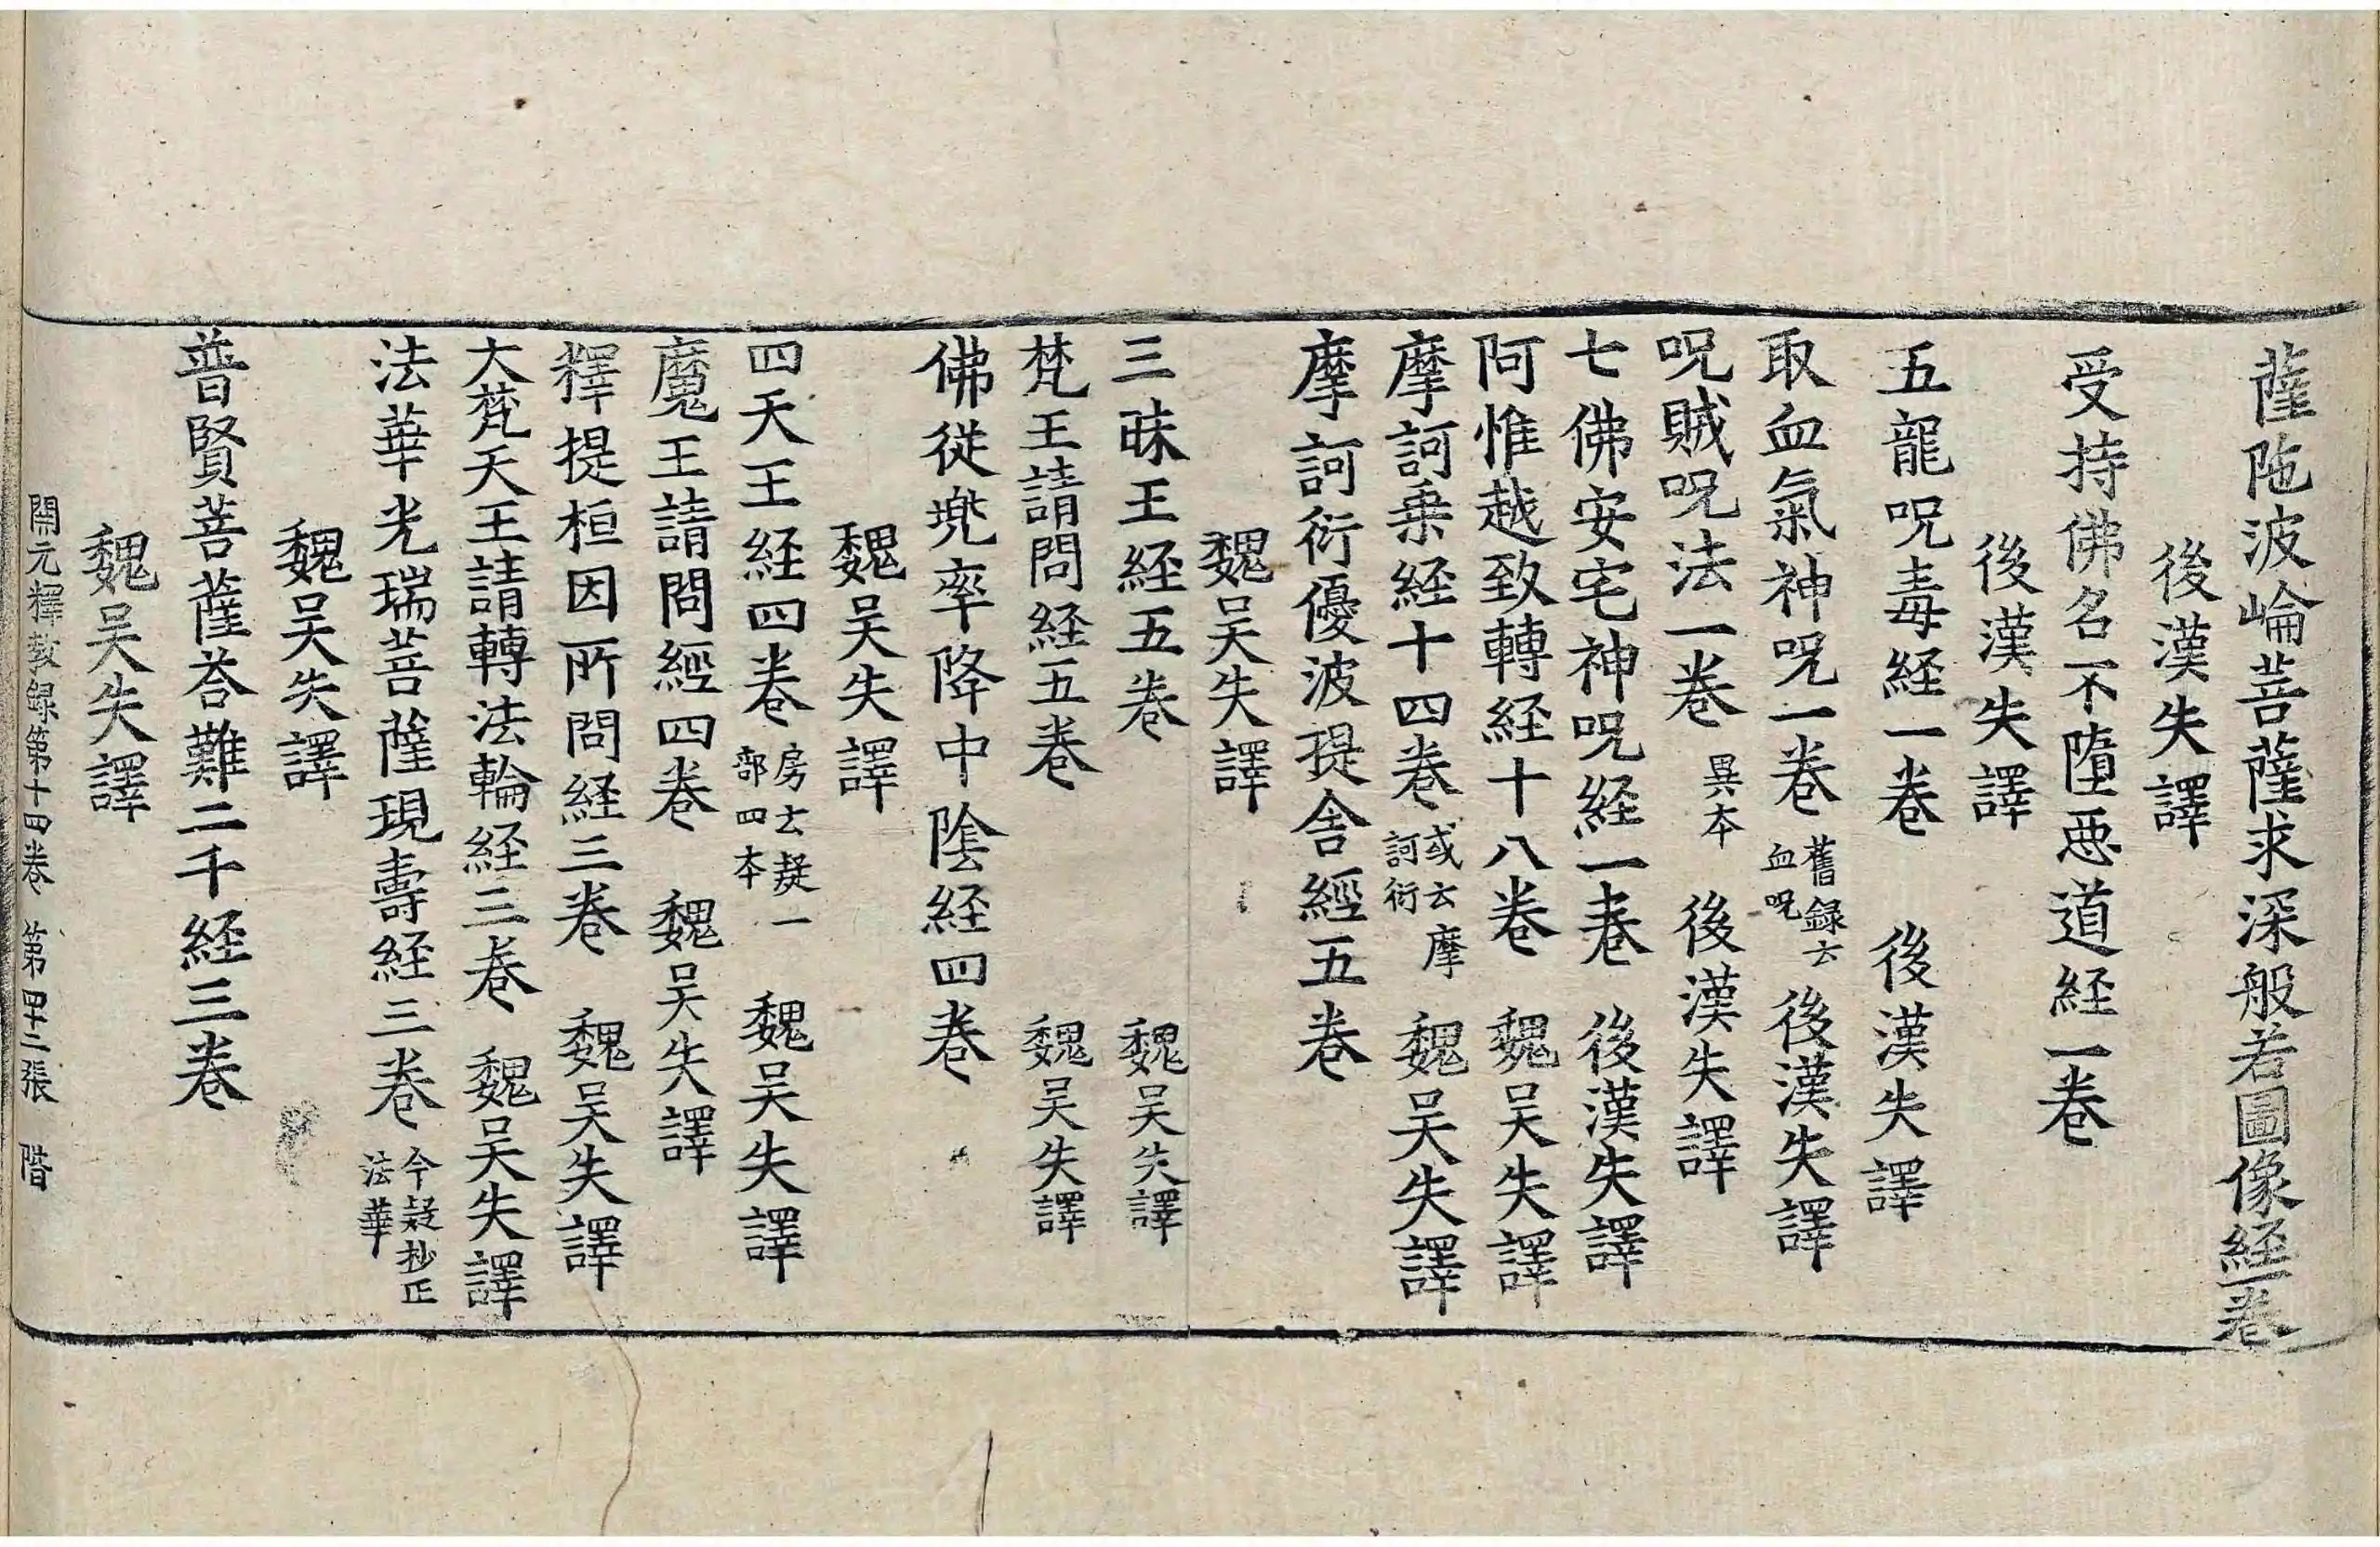 薩陁波崘菩薩求深般若圖像経一巻
後漢失譯
受持佛名不墮惡道経一巻
後漢失譯
五龍呪毒経一巻 後漢失譯
取血氣神呪一巻 舊録云血呪 後漢失譯
呪賊呪法一巻 異本 後漢失譯
七佛安宅神呪経一巻 後漢失譯
阿惟越致轉経十八巻 魏吴失譯
摩訶乗経十四巻 或云摩訶衍 魏吴失譯
摩訶衍優波提舍經五巻
魏吴失譯
三昧王経五巻 魏吴失譯
梵王請問経五巻 魏吴失譯
佛從兠率降中陰経四巻
魏吴失譯
四天王経四巻 房云疑一部四本 魏吴失譯
魔王請問經四巻 魏吴失譯
釋提桓因所問経三巻 魏吴失譯
大梵天王請轉法輪経三巻 魏吴失譯
法華光瑞菩薩現壽経三巻 今疑抄正法華
魏吴失譯
普賢菩薩荅難二千経三巻
魏吴失譯
開元釋教録第十四巻 第四十二張 階